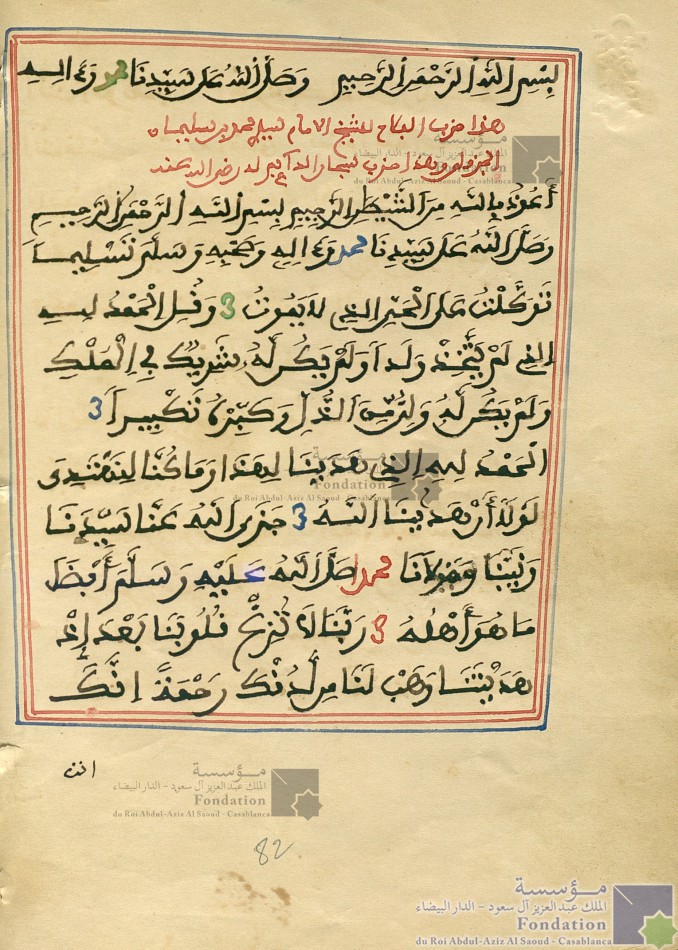 بسم الله الرحمن الرحيم وصلى الله على سيدنا محمد وءاله
هذا حزب الفلاح للشيخ الامام سيد محمد بن سليمان
الجزولي وهذا حزب سبحان الدايم له رضي الله عنه
أعوذ بالله من الشيطن الرجيم بسم الله الرحمن الرحيم
وصلى الله على سيدنا محمد وءاله وصحبه وسلم تسليما
توكلت على الحي الذي لا يموت 3 وقل الحمد لله
الذي لم يتخذ ولدا ولم يكن له شريك في الملك
ولم يكن له ولي من الذل وكبره تكبيرا 3
الحمد لله الذي هدينا لهذا وما كنا لنهتدي
لولا أن هدينا الله 3 جزى الله عنا سيدنا
ونبينا ومولانا محمدا صلى الله عليه وسلم أفضل
ما هو أهله 3 ربنا لا تزغ قلوبنا بعد إذ
هديتنا وهب لنا من لدنك رحمة انك
انت
82
مؤسسة
الملك عبد العزيز آل سعود - الدار البيضاء
Fondation
du Roi Abdul-Aziz Al Saoud - Casablanca